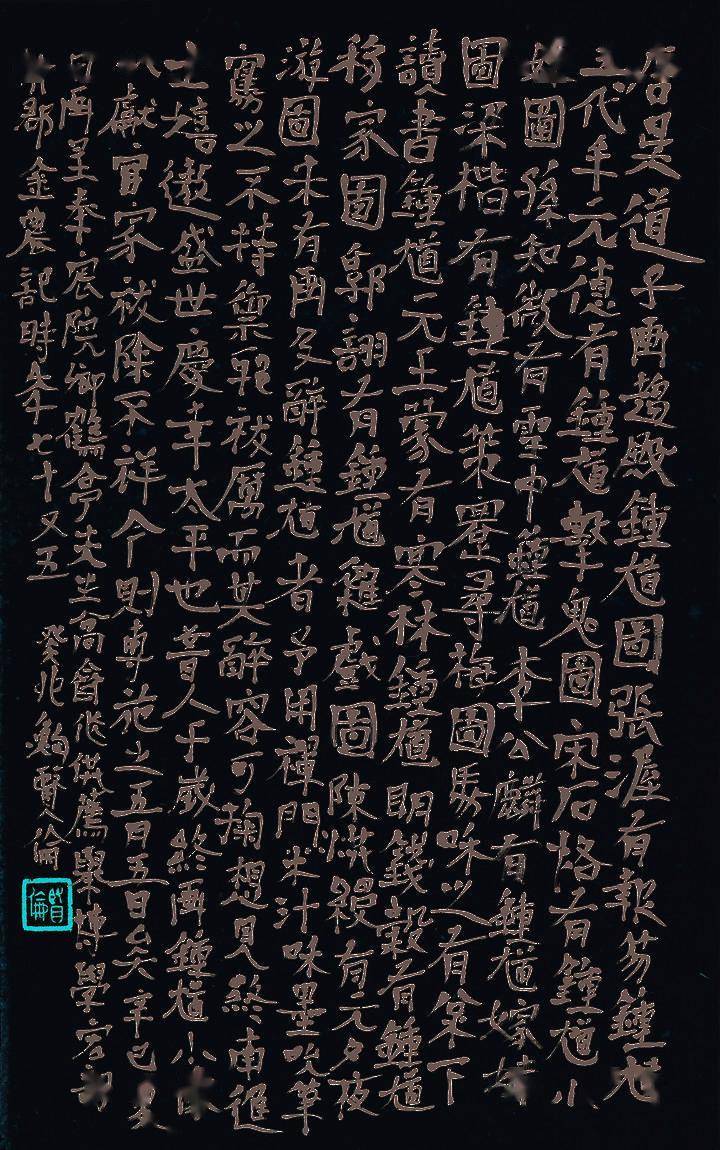 唐吳道子画趨殿鍾馗圖張渥有執笏鍾馗
五代牟元德有鍾馗擊鬼圖宋石恪有鍾馗小
妹圖孫知微有雪中鍾馗李公麟有鍾馗嫁妹
圖梁楷有鍾馗策蹇尋梅圖馬咊之有松下
讀書鍾馗元王蒙有寒林鍾馗明錢穀有鍾馗
移家圖郭詡有鍾馗雜戲圖陳洪綬有元夕夜
游圖未有画及醉鍾馗者予用禪門米汁咊墨吮筆
寫之不特禦邪祓厲而其醉容可掬想見終南進
士嬉遨盛世慶幸太平也昔人于歲終画鍾馗小像
以獻官家祓除不祥今則專施之五月五日矣辛巳夏
日画呈奉宸院卿鶴亭高會作供薦舉博學宏詞
杭郡金農記時年七十又五
賢倫